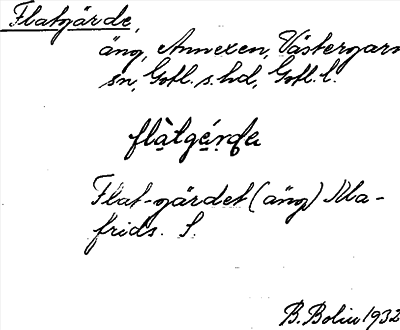 Flatgärde,
äng, Annexen, Västergarn
sn, Gotl. s. hd, Gotl. l.
flàtgę́rda
Flat-gärdet (äng) Ma-
frids. S.
B. Bolin 1932